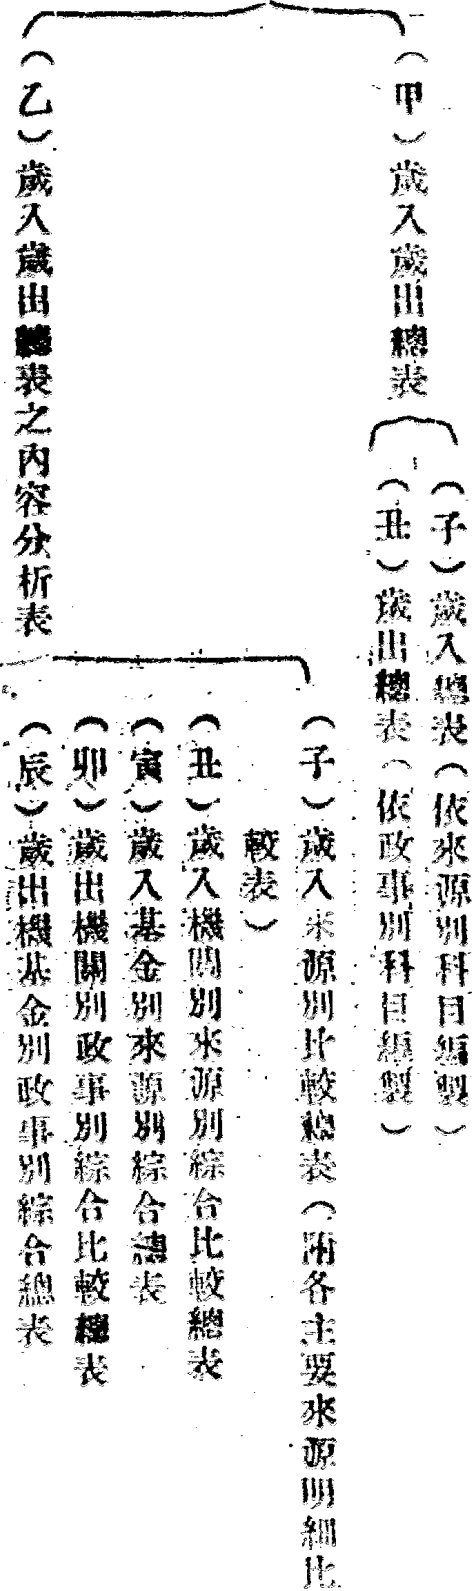 （甲）歲入歲出總表
（子）歲入總表（依來源別科目編製）
（丑）歲出總表（依政事別科目編製）
（乙）歲入歲出總表之內容分析表
（子）歲入來源別比較總表（附各主要來源明細比
較表）
（丑）歲入機關別來源別綜合比較總表
（寅）歲入基金別來源別綜合總表
（卯）歲出機關別政事別綜合比較總表
（辰）歲出機基金別政事別綜合總表